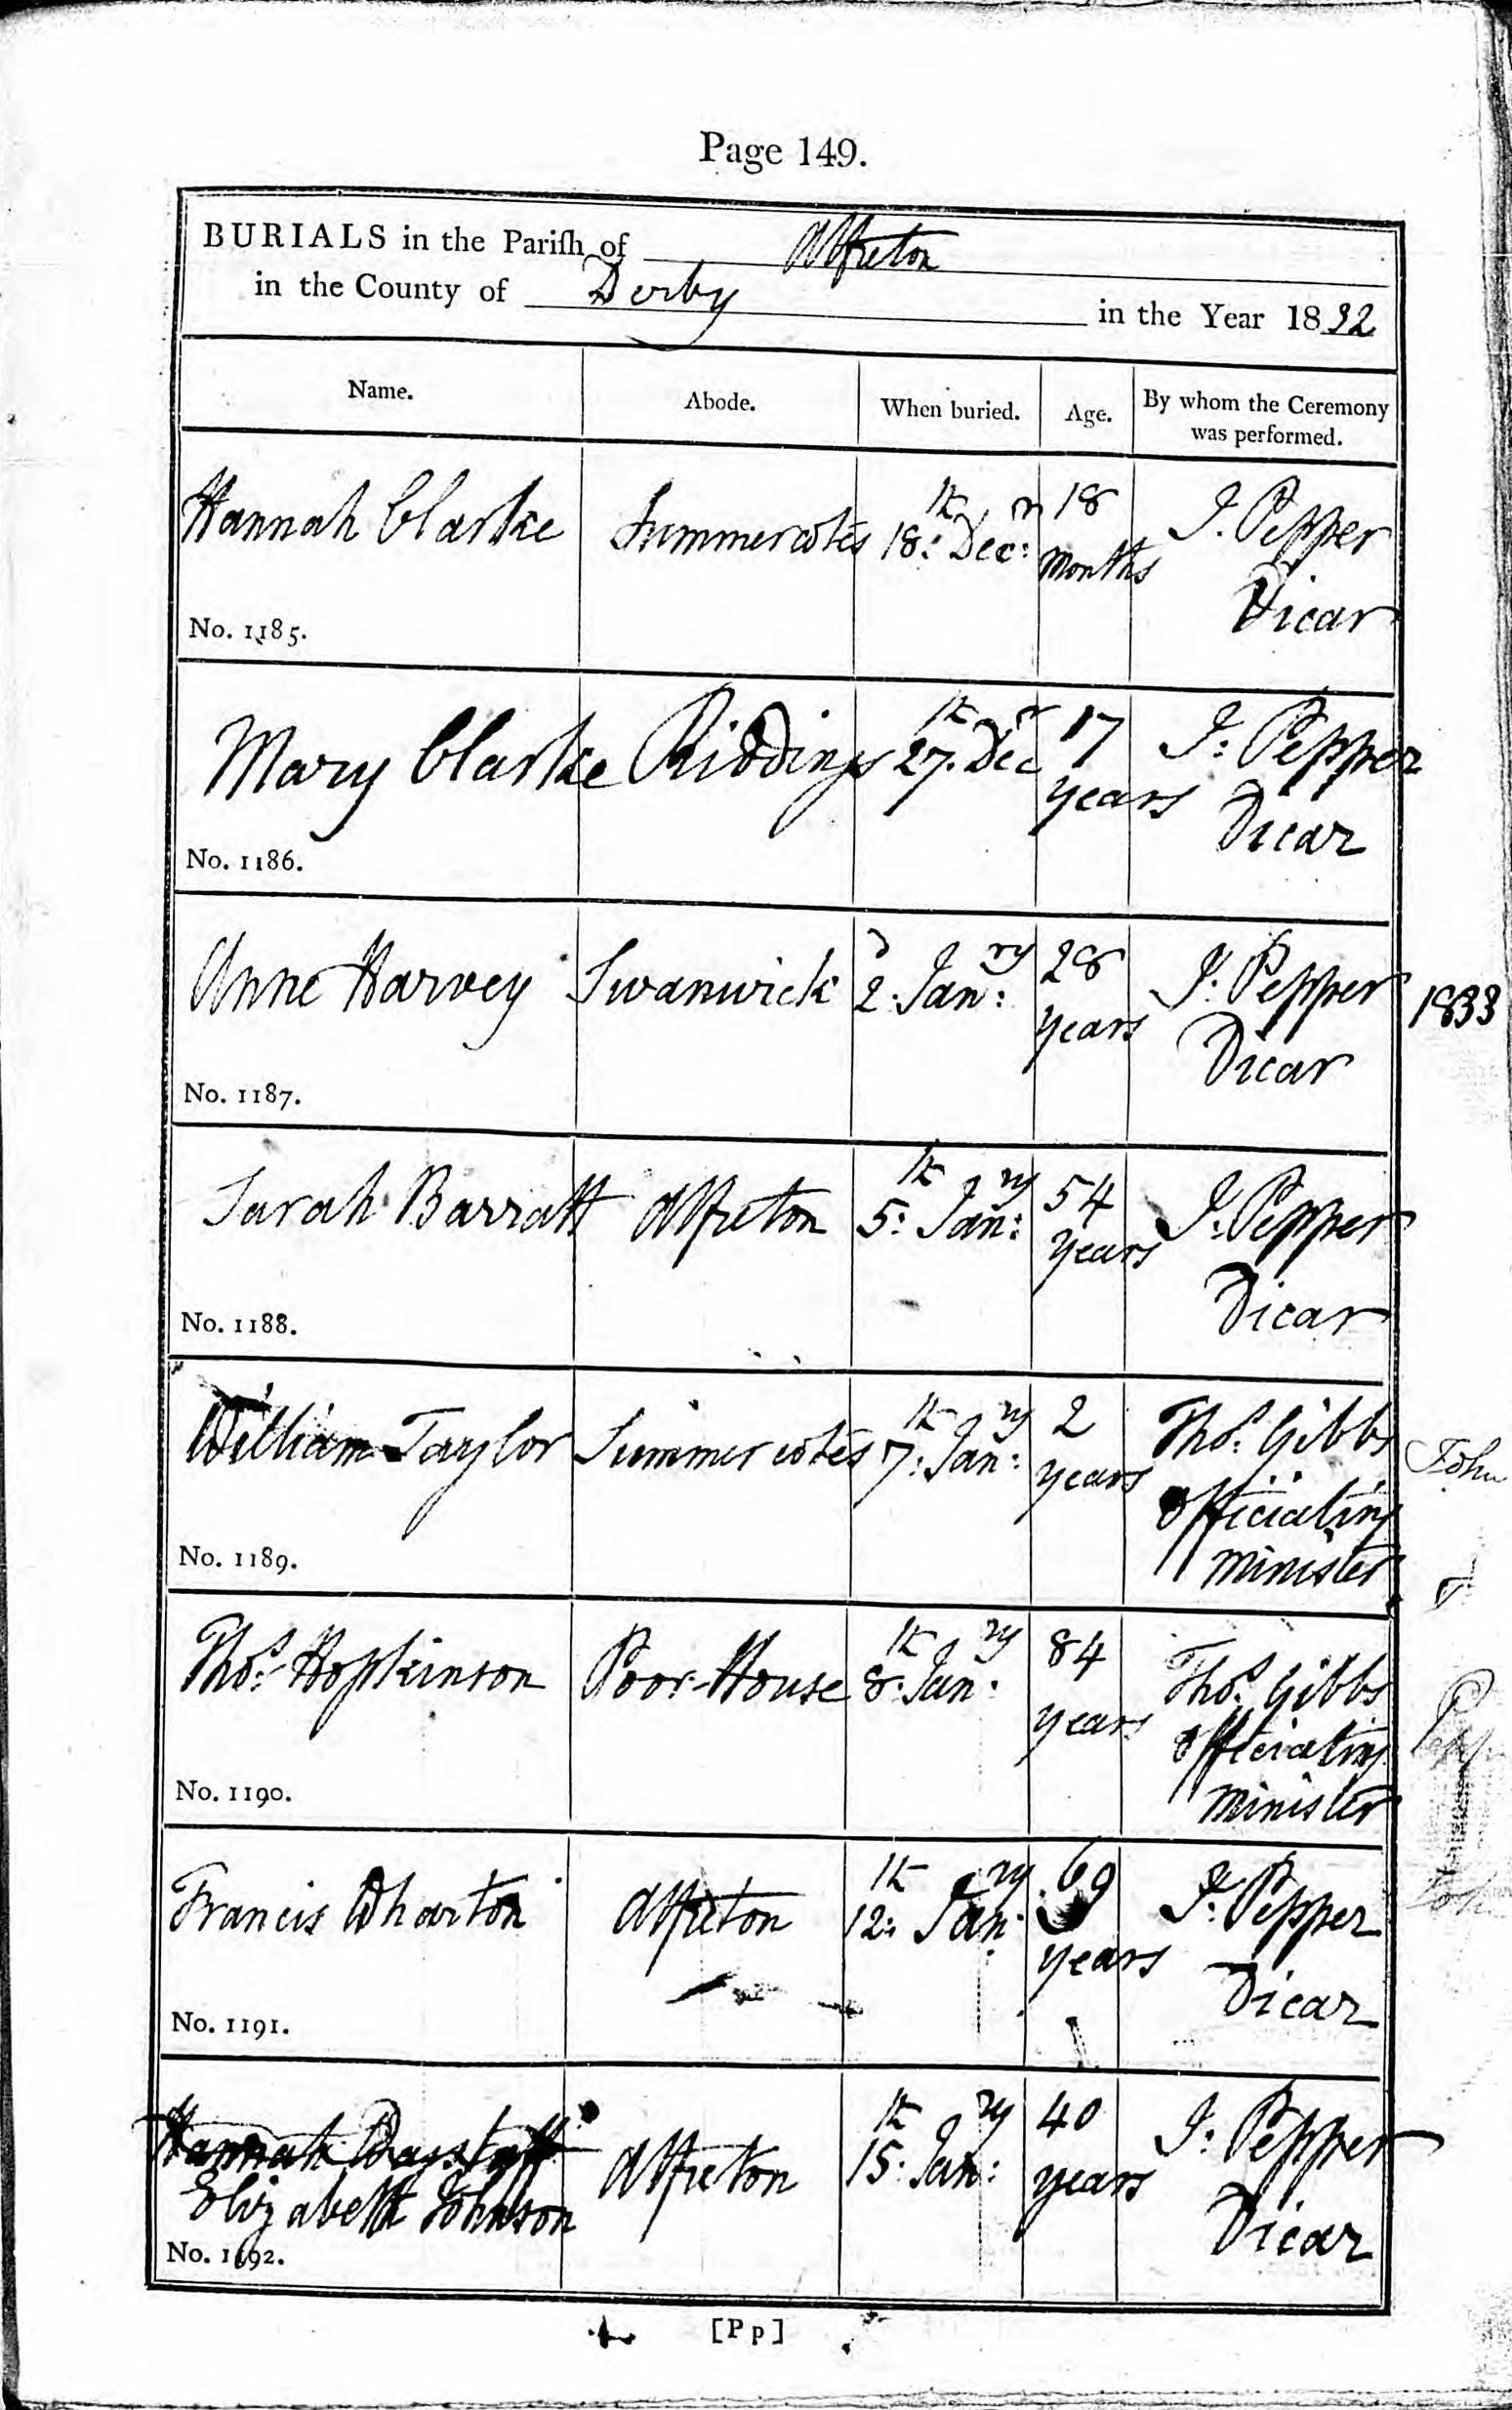 Page 149.
BURIALS in the Pariſh of Alfreton
in the County of Derby in the Year 1832
Name. Abode. When buried. Age. By whom the Ceremony was performed.
Hannah Clarke Summercotes 18:th Decr: 18 months J. Pepper Vicar
No. 1185.
Mary Clarke Riddings 27.th Decr 17 years J: Pepper Vicar
No. 1186.
Anne Harvey Swanwick 2.d Janry: 28 years J: Pepper Vicar 1833
No. 1187.
Sarah Barratt Alfreton 5:th Janry: 54 years J: Pepper Vicar
No. 1188.
William Taylor Summercotes 7:th Janry: 2 years Thos. Gibbs officiating minister John
No. 1189.
Thos. Hopkinson Poor-House 8:th Janry: 84 years Thos. Gibbs officiating minister
No. 1190.
Francis Wharton Alfreton 12:th Janry: 69 years J: Pepper Vicar
No. 1191.
Hannah Wagstaff
Elizabeth Johnson Alfreton 15:th Janry: 40 years J: Pepper Vicar
No. 1192.
[Pp]